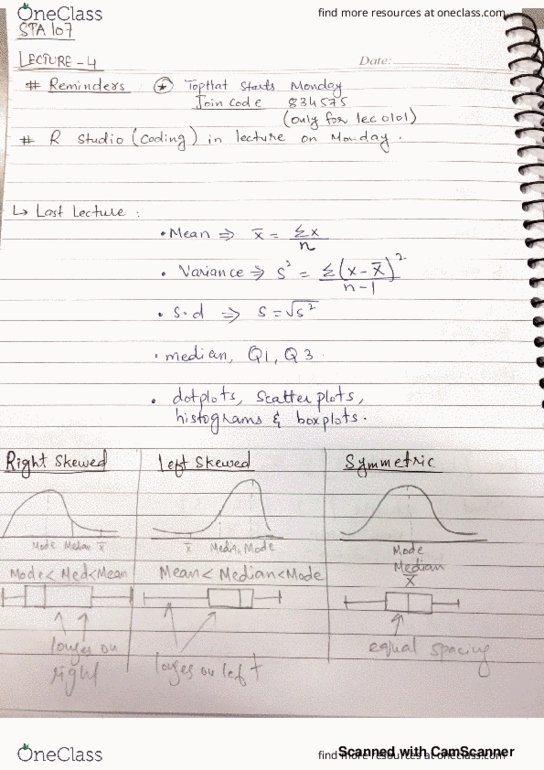 OneClass
find more resources at oneclass.com
STA 107
LECTURE - 4
Date:
# Reminders ⊛ TopHat Starts Monday
Join Code 834575
(only for lec 0101)
# R Studio (Coding) in lecture on Monday.
↳ Last Lecture :
• Mean ⇒ x̄ = Σx / n
• Variance ⇒ s² = Σ(x - x̄)² / n-1
• S.d ⇒ S = √s²
• median, Q1, Q3.
• dotplots, Scatter plots,
histograms & boxplots.
Right Skewed Left Skewed Symmetric
Mode Median x̄ x̄ Median Mode Mode
Median
x̄
Mode < Med < Mean Mean < Median < Mode
longer on
right
longer on left
equal spacing
OneClass
find more resources at oneclass.com
Scanned with CamScanner